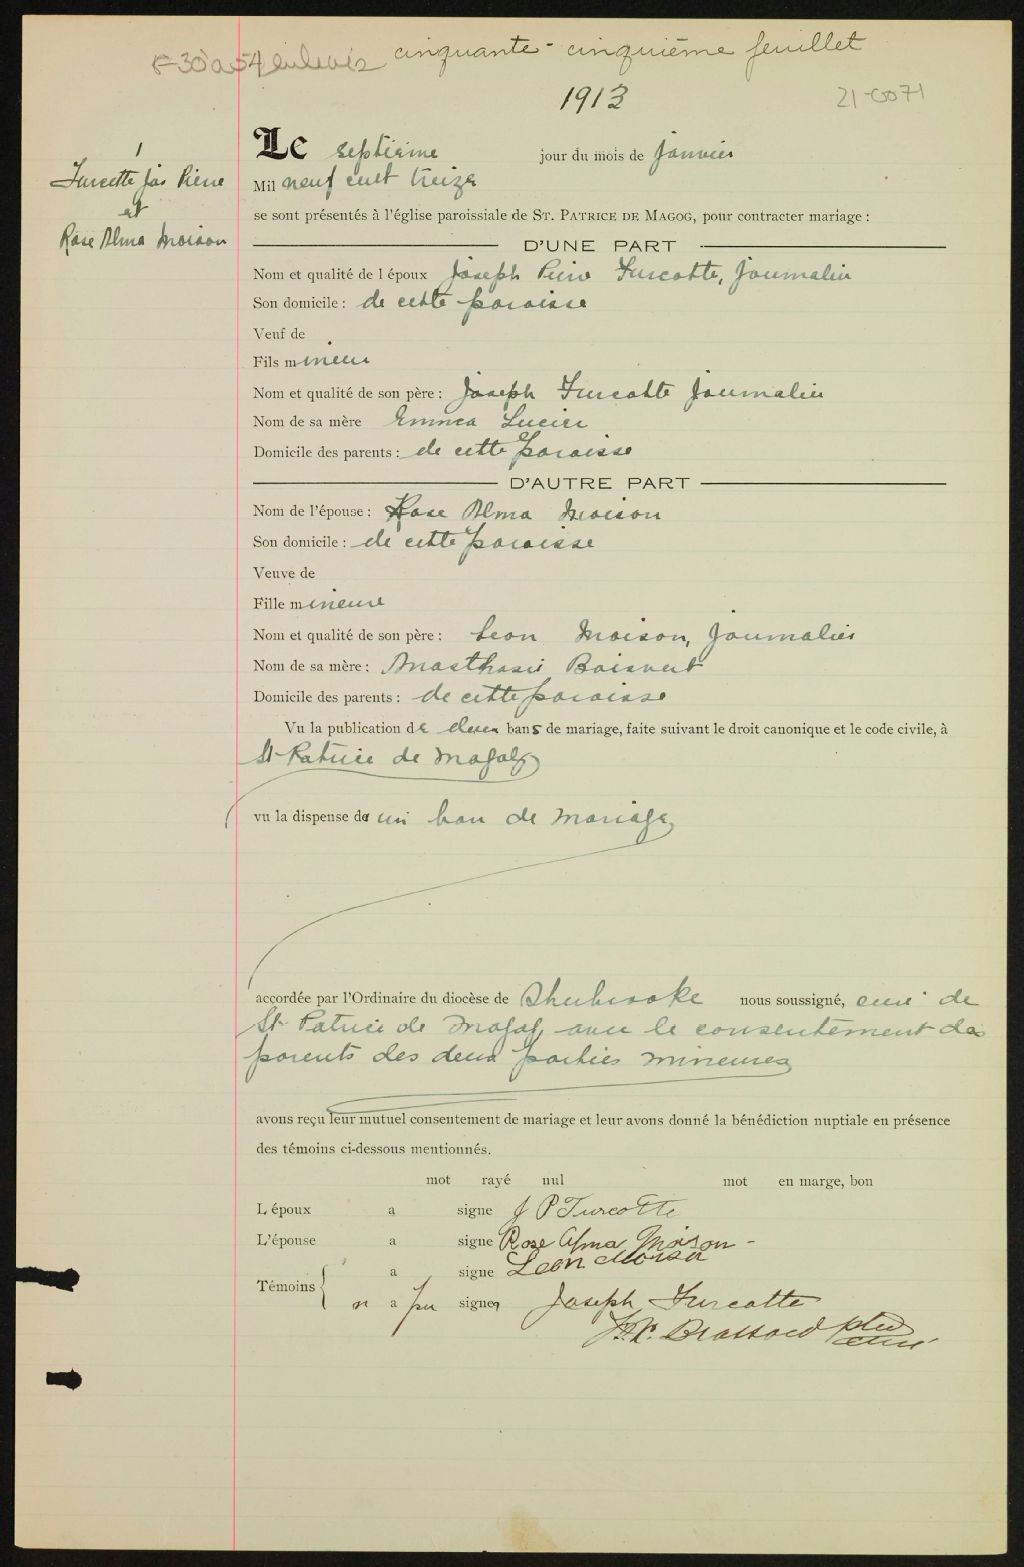 cinquante-cinquième feuillet
F-30 à 54 enlevés
1913
21-0071
1
Turcotte Jos Pierre
et
Rose Alma Moison
Le septième jour du mois de janvier
Mil neuf cent treize
se sont présentés à l'église paroissiale de ST. PATRICE DE MAGOG, pour contracter mariage :
D'UNE PART
Nom et qualité de l époux Joseph Pierre Turcotte, journalier
Son domicile : de cette paroisse
Veuf de
Fils mineur
Nom et qualité de son père : Joseph Turcotte journalier
Nom de sa mère Emma Lucier
Domicile des parents : de cette paroisse
D'AUTRE PART
Nom de l'épouse : Rose Alma Moison
Son domicile : de cette paroisse
Veuve de
Fille mineure
Nom et qualité de son père : Leon Moison, journalier
Nom de sa mère : Anasthasie Boisvert
Domicile des parents : de cette paroisse
Vu la publication de deux bans de mariage, faite suivant le droit canonique et le code civile, à
St-Patrice de Magog
vu la dispense de un ban de mariage
accordée par l'Ordinaire du diocèse de Sherbrooke nous soussigné, curé de
St-Patrice de Magog avec le consentement des
parents des deux parties mineures
avons reçu leur mutuel consentement de mariage et leur avons donné la bénédiction nuptiale en présence
des témoins ci-dessous mentionnés.
mot rayé nul mot en marge, bon
L époux a signe J P Turcotte
L'épouse a signe Rose Alma Moison -
Témoins a signe Leon Moison
n a pu signer Joseph Turcotte
Brassard ptre
curé